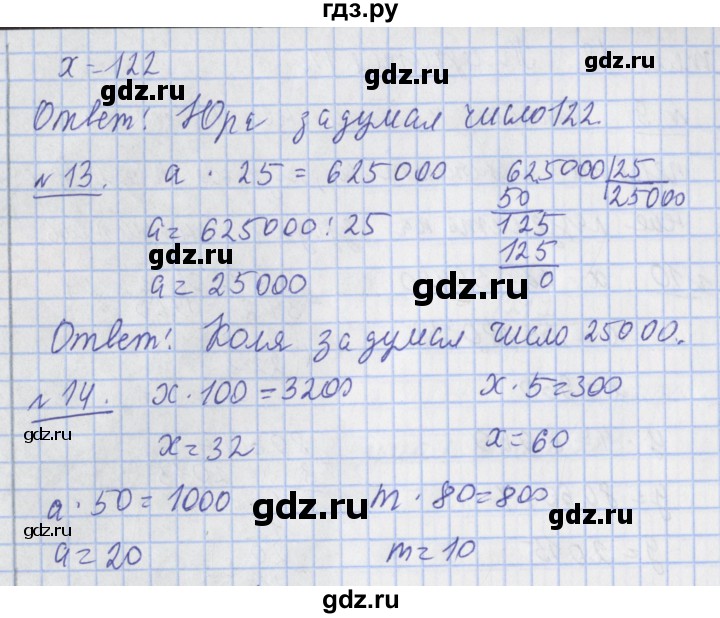 гдз.ру
x = 122
gdz.ru gdz.ru
Ответ: Юра задумал число 122.
№ 13. a · 25 = 625000 625000 | 25
50 25000
a = 625000 : 25 125
gdz.ru gdz.ru
125
a = 25000 0
Ответ: Коля задумал число 25000.
№ 14. x · 100 = 3200 x · 5 = 300
gdz.ru gdz.ru
x = 32 x = 60
a · 50 = 1000 m · 80 = 800
gdz.ru gdz.ru gdz.ru
a = 20 m = 10
gdz.ru